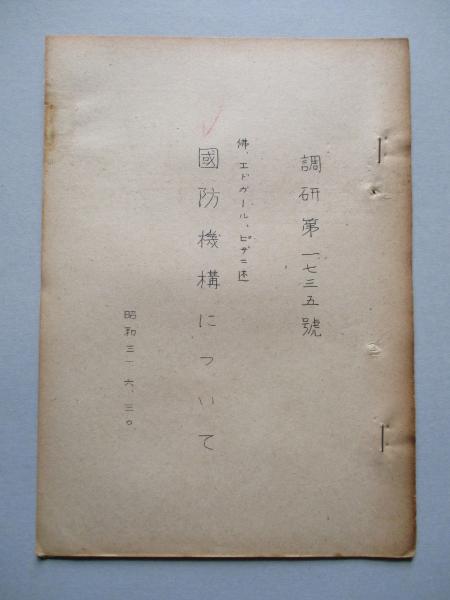 調研第一七三五號
佛、エドガール、ピザニ述
國防機構について
昭和三一、六、三〇